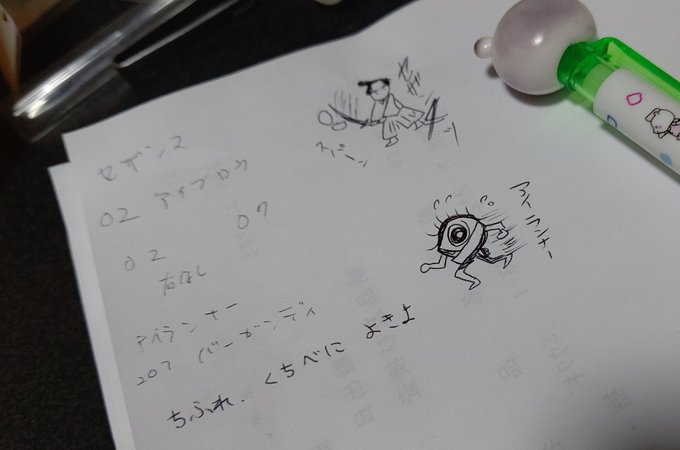 セザンヌ
02 アイブロウ
02 07
右はし
アイランナー
207 バーガンディ
ちふれ. くちべに よきよ
セザ
ヌ
スパーン
アイランナー